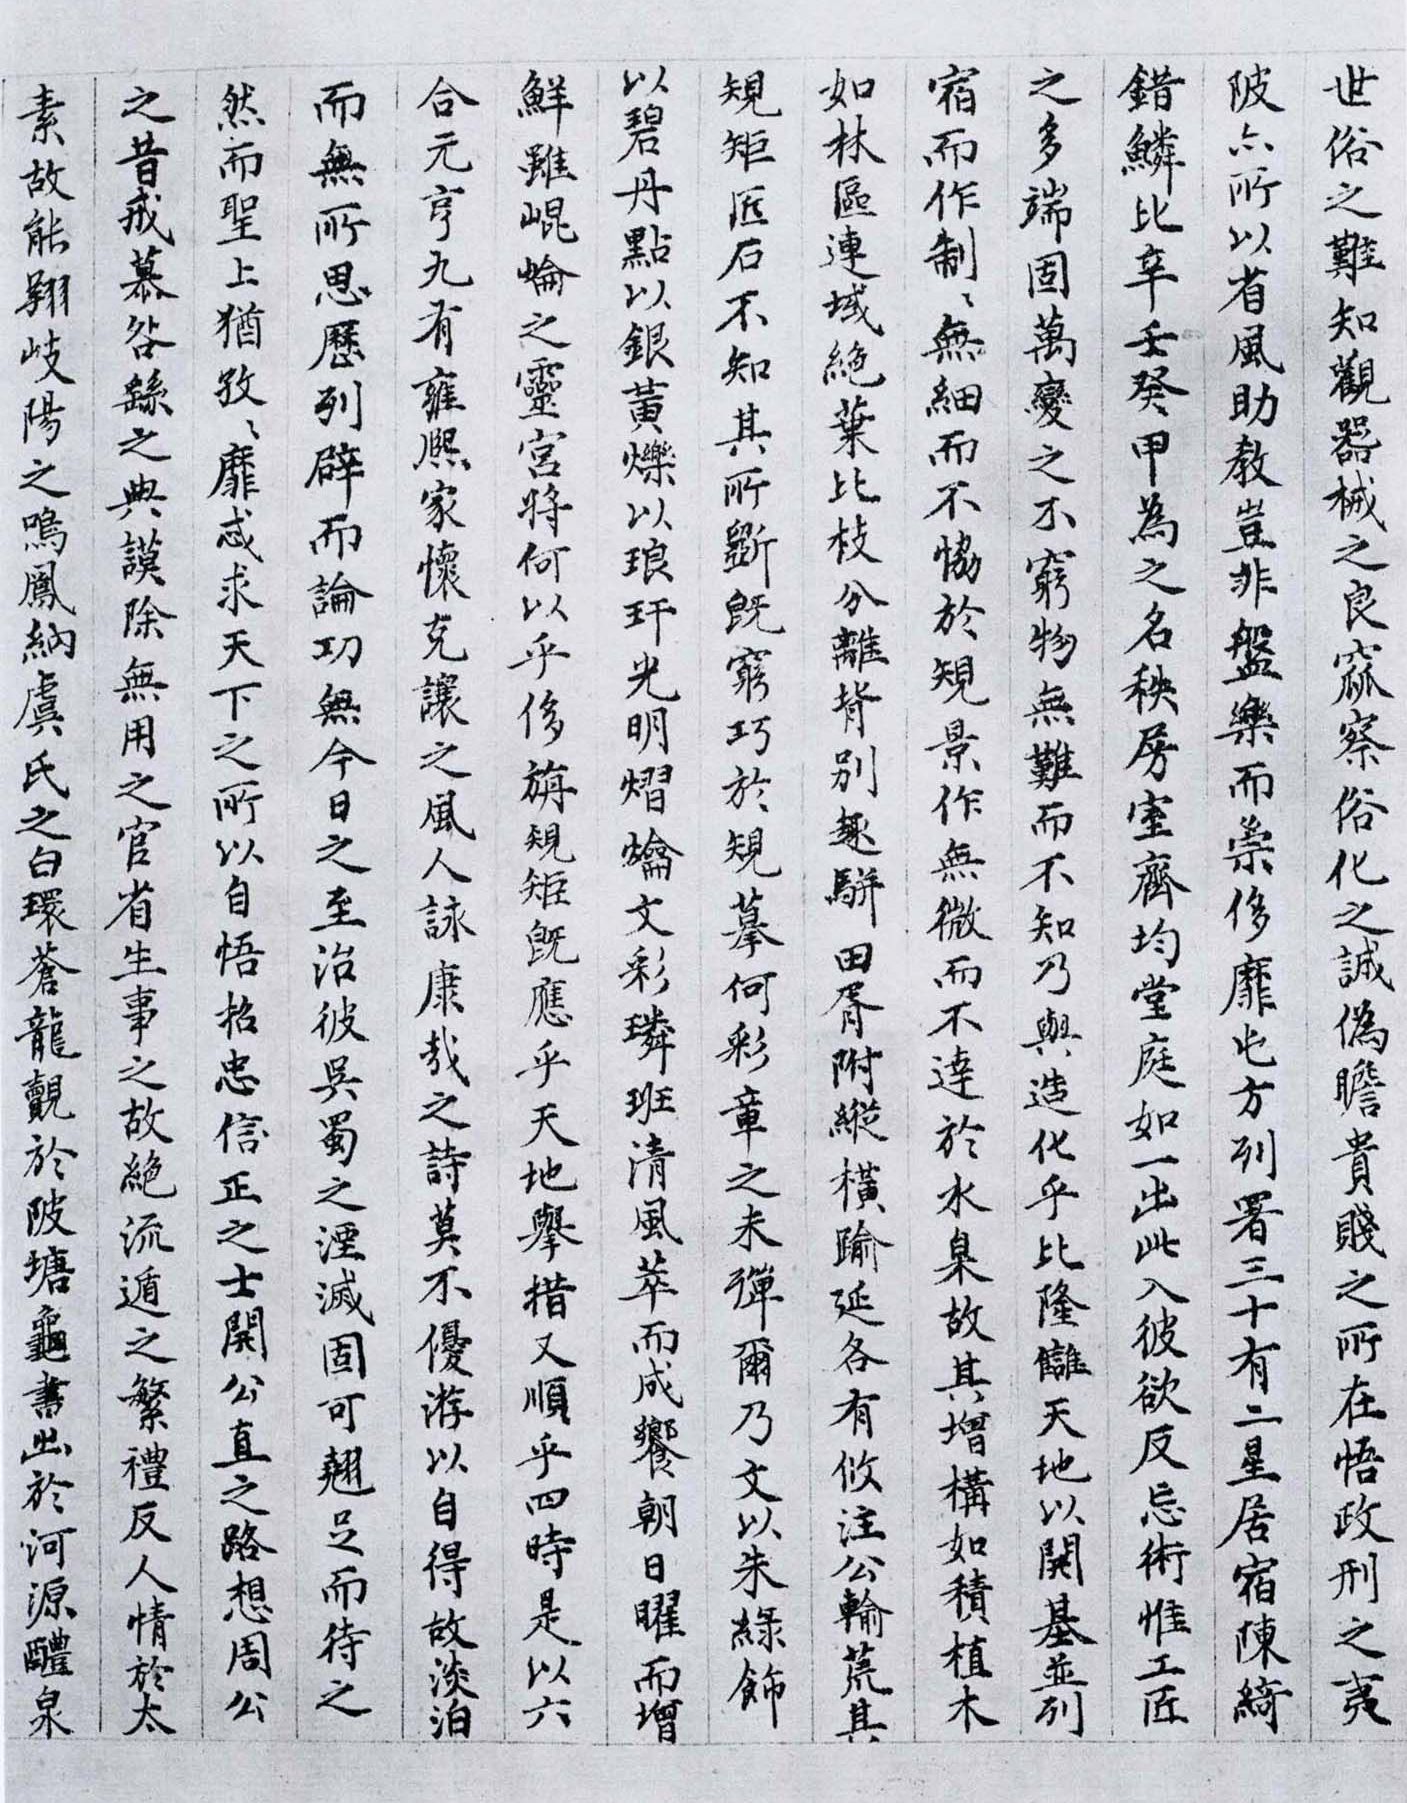 世俗之難知觀器械之良窳察俗化之誠偽瞻貴賤之所在悟政刑之夷
陂亦所以省風助教豈非盤樂而崇侈靡屯方列署三十有二星居宿陳綺
錯鱗比辛壬癸甲為之名秩房室齊均堂庭如一出此入彼欲反忘術惟工匠
之多端固萬變之不窮物無難而不知乃與造化乎比隆讎天地以開基並列
宿而作制〻無細而不恊於規景作無微而不逹於水臬故其增構如積植木
如林區連域絶葉比枝分離背别趣駢田胥附縱橫踰延各有攸注公輸荒其
規矩匠石不知其所斲既窮巧於規摹何彩章之未殫爾乃文以朱緑飾
以碧丹點以銀黃爍以琅玕光明熠爚文彩璘班清風萃而成響朝日曜而增
鮮雖崐崘之靈宮將何以乎侈旃規矩既應乎天地舉措又順乎四時是以六
合元亨九有雍熙家懷克讓之風人詠康哉之詩莫不優游以自得故淡泊
而無所思歷列辟而論功無今日之至治彼吳蜀之湮滅固可翹足而待之
然而聖上猶孜〻靡忒求天下之所以自悟招忠信正之士開公直之路想周公
之昔戒慕咎繇之典謨除無用之官省生事之故絶流遁之繁禮反人情於太
素故能翔岐陽之鳴鳳納虞氏之白環蒼龍覿於陂塘龜書出於河源醴泉